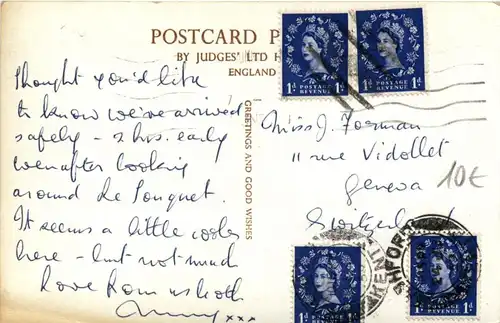 POSTCARD P
BY JUDGES' LTD H
ENGLAND
GREETINGS AND GOOD WISHES
Thought you'd like
to know we've arrived
safely - 2 hrs. early
even after looking
around Le Touquet.
It seems a little cooler
here - but not much
Love from us both
xxx
Miss J. Forman
11 rue Vidollet
Geneva
Switzerland
10€
1d POSTAGE REVENUE 1d
1d POSTAGE REVENUE 1d
1d POSTAGE REVENUE 1d
1d POSTAGE REVENUE 1d
KENT